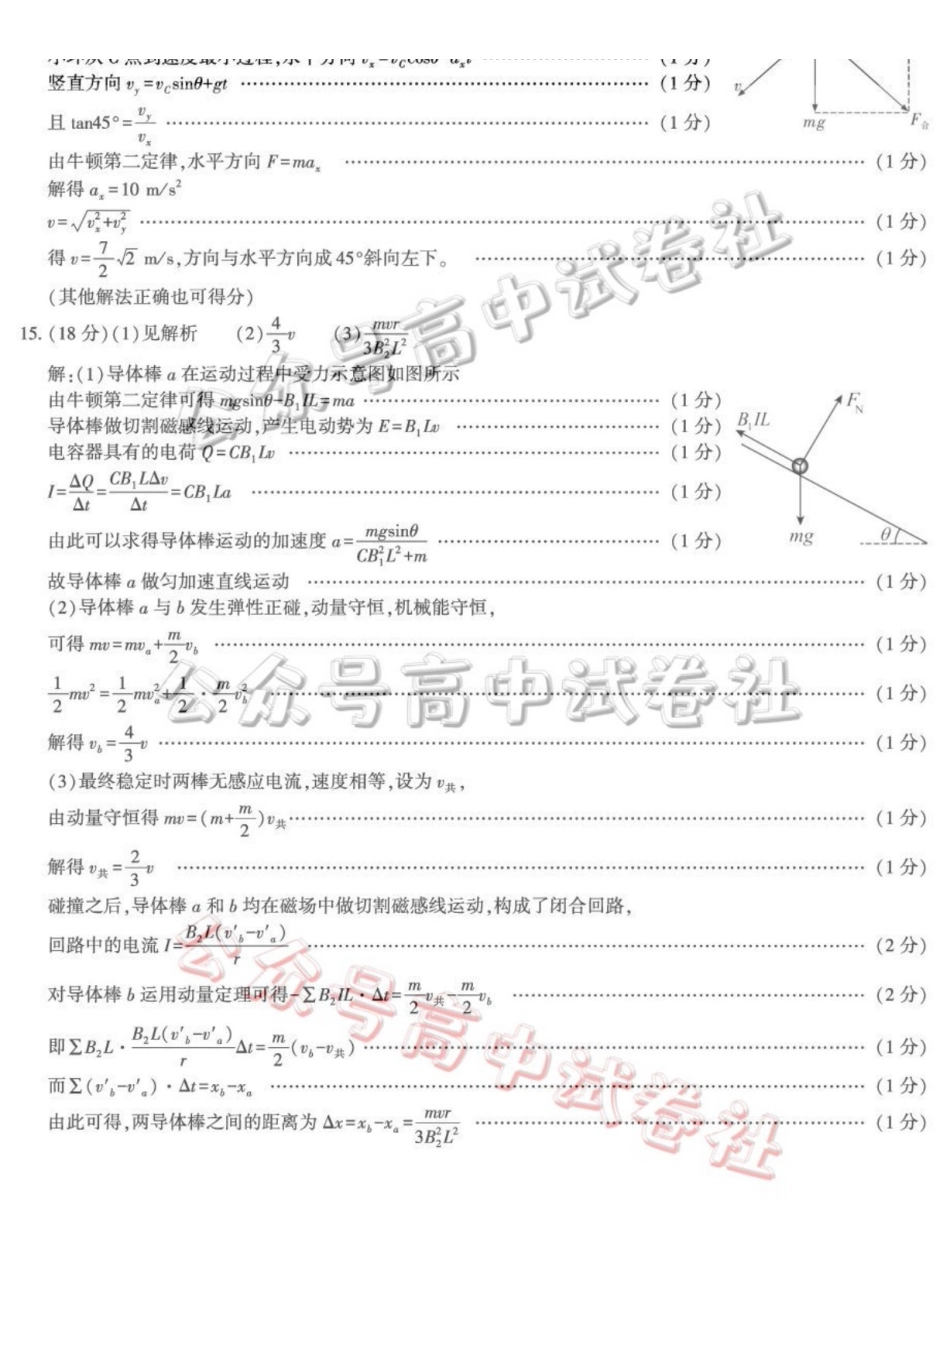 竖直方向 v_y=v_C sinθ+gt (1分)
且 tan45°=v_y/v_x (1分)
由牛顿第二定律,水平方向 F=ma_x (1分)
解得 a_x=10 m/s²
v=√(v_x²+v_y²) (1分)
得 v=7/2 √2 m/s,方向与水平方向成 45°斜向左下。 (1分)
(其他解法正确也可得分)
v
mg
F合
15. (18分)(1)见解析 (2)4/3 v (3)mvr/3B₂²L²
解:(1)导体棒 a 在运动过程中受力示意图如图所示
由牛顿第二定律可得 mgsinθ-B₁IL=ma (1分)
导体棒做切割磁感线运动,产生电动势为 E=B₁Lv (1分)
电容器具有的电荷 Q=CB₁Lv (1分)
I=ΔQ/Δt=CB₁LΔv/Δt=CB₁La (1分)
由此可以求得导体棒运动的加速度 a=mgsinθ/CB₁²L²+m (1分)
B₁IL
F_N
mg
θ
故导体棒 a 做匀加速直线运动 (1分)
(2)导体棒 a 与 b 发生弹性正碰,动量守恒,机械能守恒,
可得 mv=mv_a+m/2 v_b (1分)
1/2 mv²=1/2 mv_a²+1/2·m/2 v_b² (1分)
解得 v_b=4/3 v (1分)
(3)最终稳定时两棒无感应电流,速度相等,设为 v共,
由动量守恒得 mv=(m+m/2)v共 (1分)
解得 v共=2/3 v (1分)
碰撞之后,导体棒 a 和 b 均在磁场中做切割磁感线运动,构成了闭合回路,
回路中的电流 I=B₂L(v'_b-v'_a)/r (2分)
对导体棒 b 运用动量定理可得-∑B₂IL·Δt=m/2 v共-m/2 v_b (2分)
即∑B₂L·B₂L(v'_b-v'_a)/r Δt=m/2(v_b-v共) (1分)
而∑(v'_b-v'_a)·Δt=x_b-x_a (1分)
由此可得,两导体棒之间的距离为 Δx=x_b-x_a=mvr/3B₂²L² (1分)
公众号高中试卷社
公众号高中试卷社
公众号高中试卷社